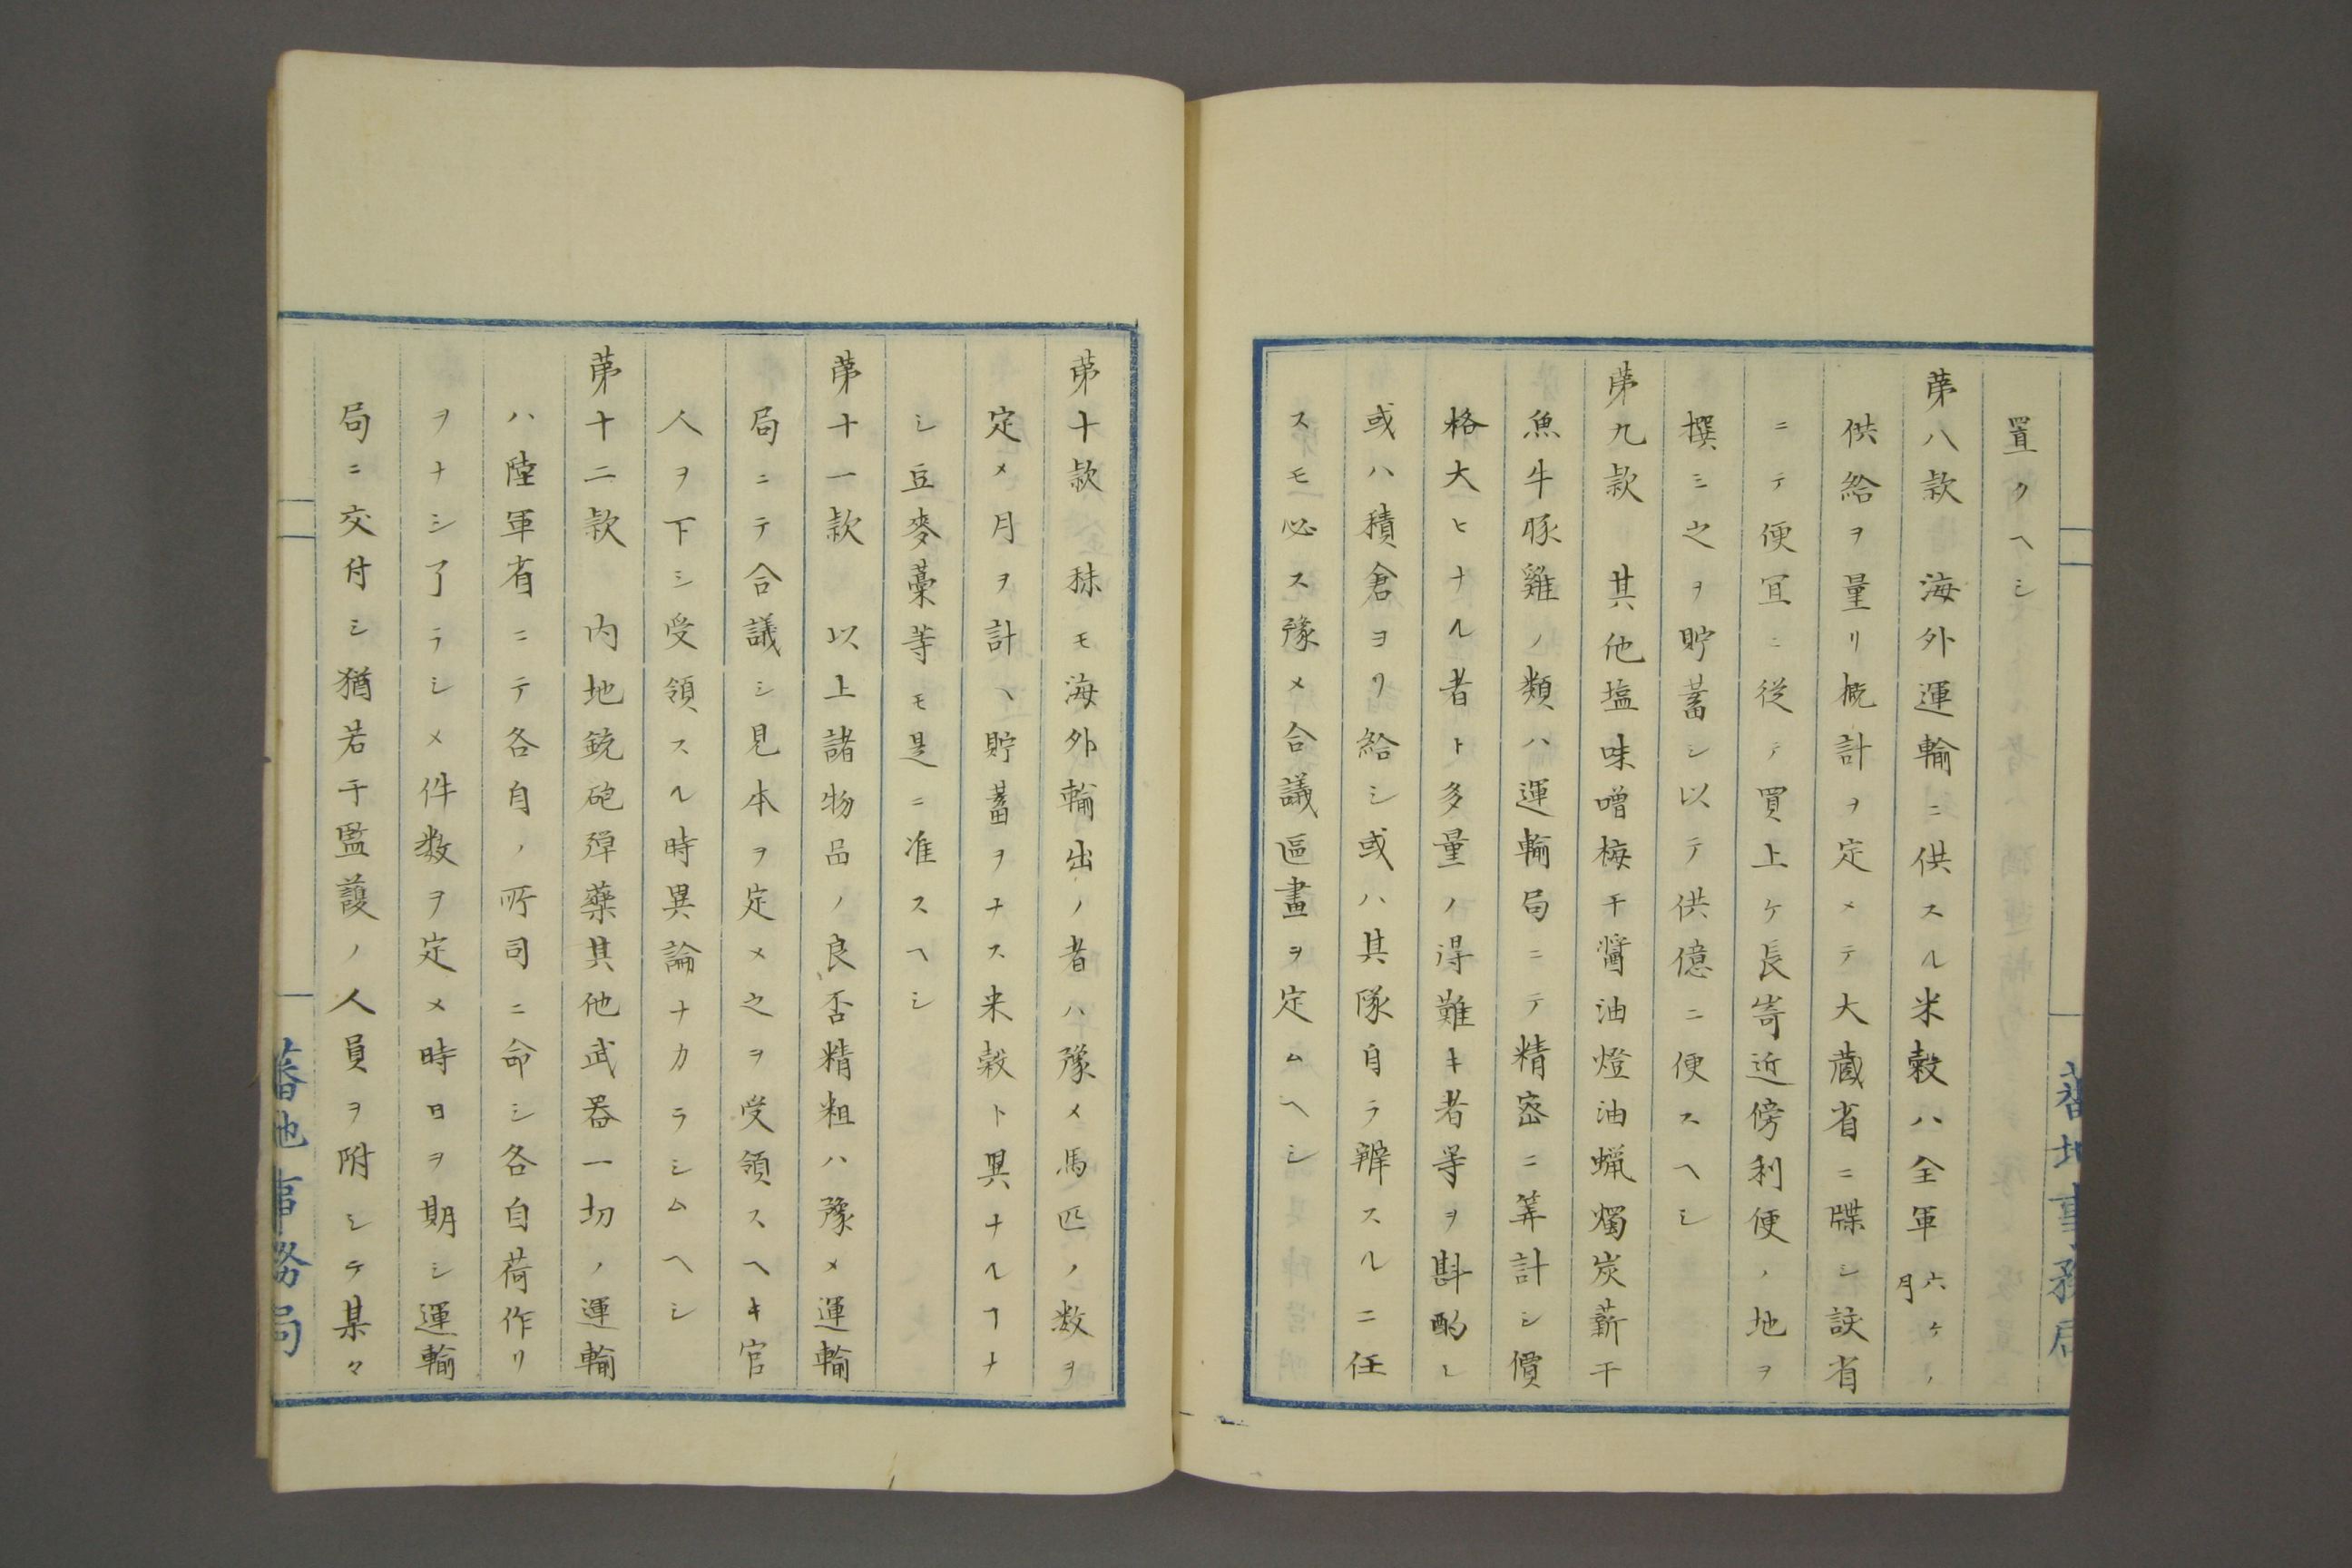 置クヘシ
第八款　海外運輸ニ供スル米穀ハ全軍六ケ月ノ
供給ヲ量リ概計ヲ定メテ大蔵省ニ牒シ該省
ニテ便宜ニ従テ買上ケ長崎近傍利便ノ地ヲ
撰ミ之ヲ貯蓄シ以テ供億ニ便スヘシ
第九款　其他塩味噌梅干醤油燈油蝋燭炭薪干
魚牛豚雞ノ類ハ運輸局ニテ精密ニ筭計シ價
格大ヒナル者ト多量ノ得難キ者等ヲ斟酌シ
或ハ積倉ヨリ給シ或ハ其隊自ラ辨スルニ任
スモ必ス豫メ合議區畫ヲ定ムヘシ
蕃地事務局
第十款　秣モ海外輸出ノ者ハ豫メ馬匹ノ数ヲ
定メ月ヲ計ヘ貯蓄ヲナス米穀ト異ナルヿナ
シ豆麥藁等モ是ニ准スヘシ
第十一款　以上諸物品ノ良否精粗ハ豫メ運輸
局ニテ合議シ見本ヲ定メ之ヲ受領スヘキ官
人ヲ下シ受領スル時異論ナカラシムヘシ
第十二款　内地銃砲弾藥其他武器一切ノ運輸
ハ陸軍省ニテ各自ノ所司ニ命シ各自荷作リ
ヲナシ了ラシメ件数ヲ定メ時日ヲ期シ運輸
局ニ交付シ猶若干監護ノ人員ヲ附シテ某々
蕃地事務局